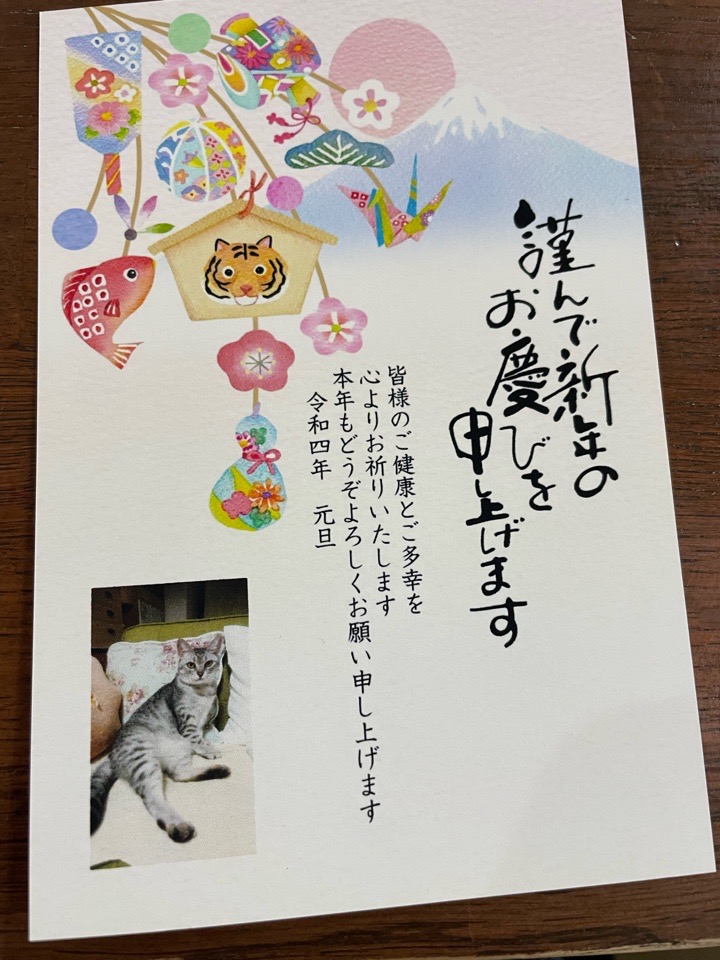 謹んで新年の
お慶びを
申し上げます
皆様のご健康とご多幸を
心よりお祈りいたします
本年もどうぞよろしくお願い申し上げます
令和四年 元旦